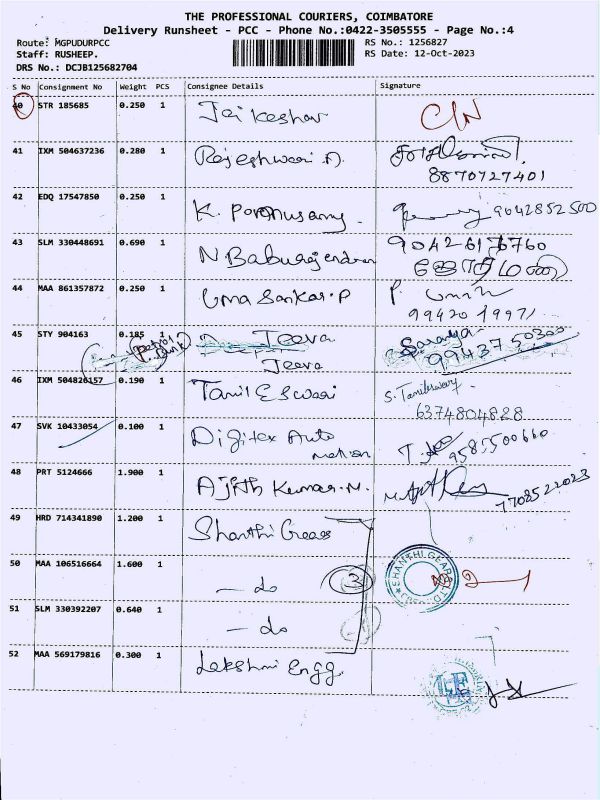 THE PROFESSIONAL COURIERS, COIMBATORE
Delivery Runsheet - PCC - Phone No.:0422-3505555 - Page No.:4
Route: MGPUDURPCC RS No.: 1256827
Staff: RUSHEEP. RS Date: 12-Oct-2023
DRS No.: DCJB125682704
S No Consignment No Weight PCS Consignee Details Signature
40 STR 185685 0.250 1 Jai Keshav C/N
41 IXM 504637236 0.280 1 Rajeshwari.A.
8870727401
42 EDQ 17547850 0.250 1 K. Ponnusamy. 9042852500
43 SLM 330448691 0.690 1 N Baburajendran 90426176760
44 MAA 861357872 0.250 1 Uma Sankar.P P.
9942019971
45 STY 904163 0.185 1 Jeeva Saranya
Jeeva 9943750300
46 IXM 504826157 0.190 1 Tamil Eswari S. Tamileswary
6374804828
47 SVK 10433054 0.100 1 Digitex Auto
mation 9585500660
48 PRT 5124666 1.900 1 Ajith Kumar.M. 7708522023
49 HRD 714341890 1.200 1 Shanthi Gears
50 MAA 106516664 1.600 1 — do 3 SHANTHI GEARS LTD.
51 SLM 330392207 0.640 1 — do
52 MAA 569179816 0.300 1 Lakshmi Engg.